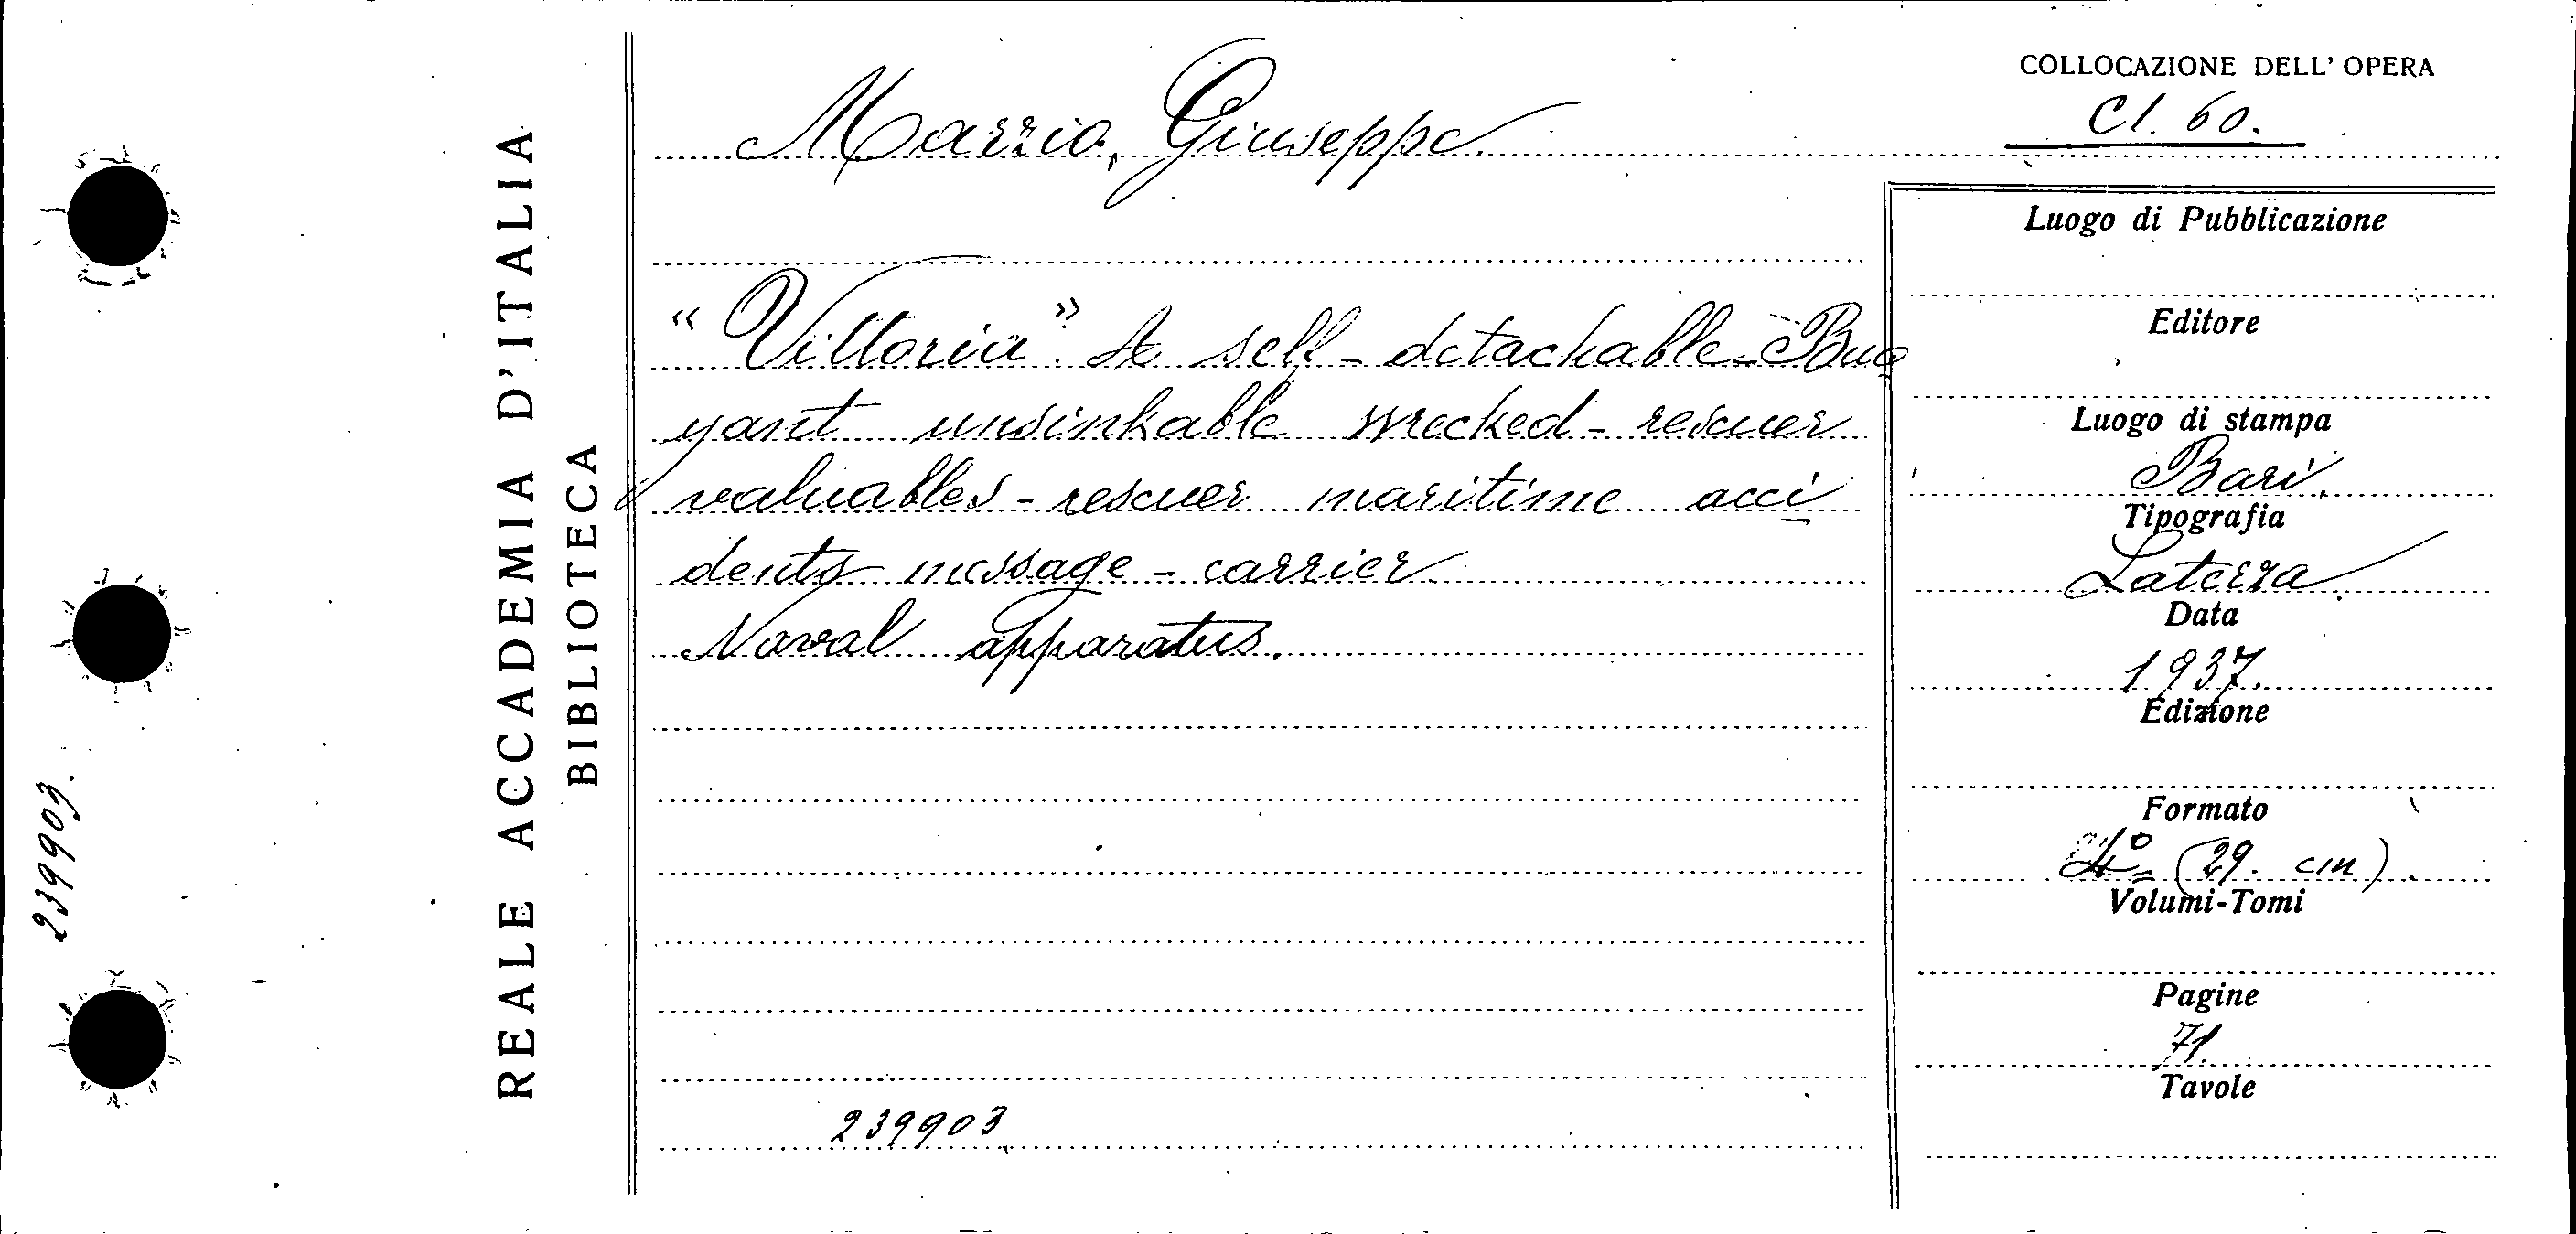 REALE ACCADEMIA D'ITALIA
BIBLIOTECA
239903.
Marzio, Giuseppe
"Vittoria". A self-detachable-Buo
yant unsinkable wrecked-rescuer
valuables-rescuer maritime acci
dents message-carrier
Naval apparatus.
239903
COLLOCAZIONE DELL'OPERA
Cl. 60.
Luogo di Pubblicazione
Editore
Luogo di stampa
Bari.
Tipografia
Laterza.
Data
1937.
Edizione
Formato
4° (29. cm).
Volumi-Tomi
Pagine
71.
Tavole